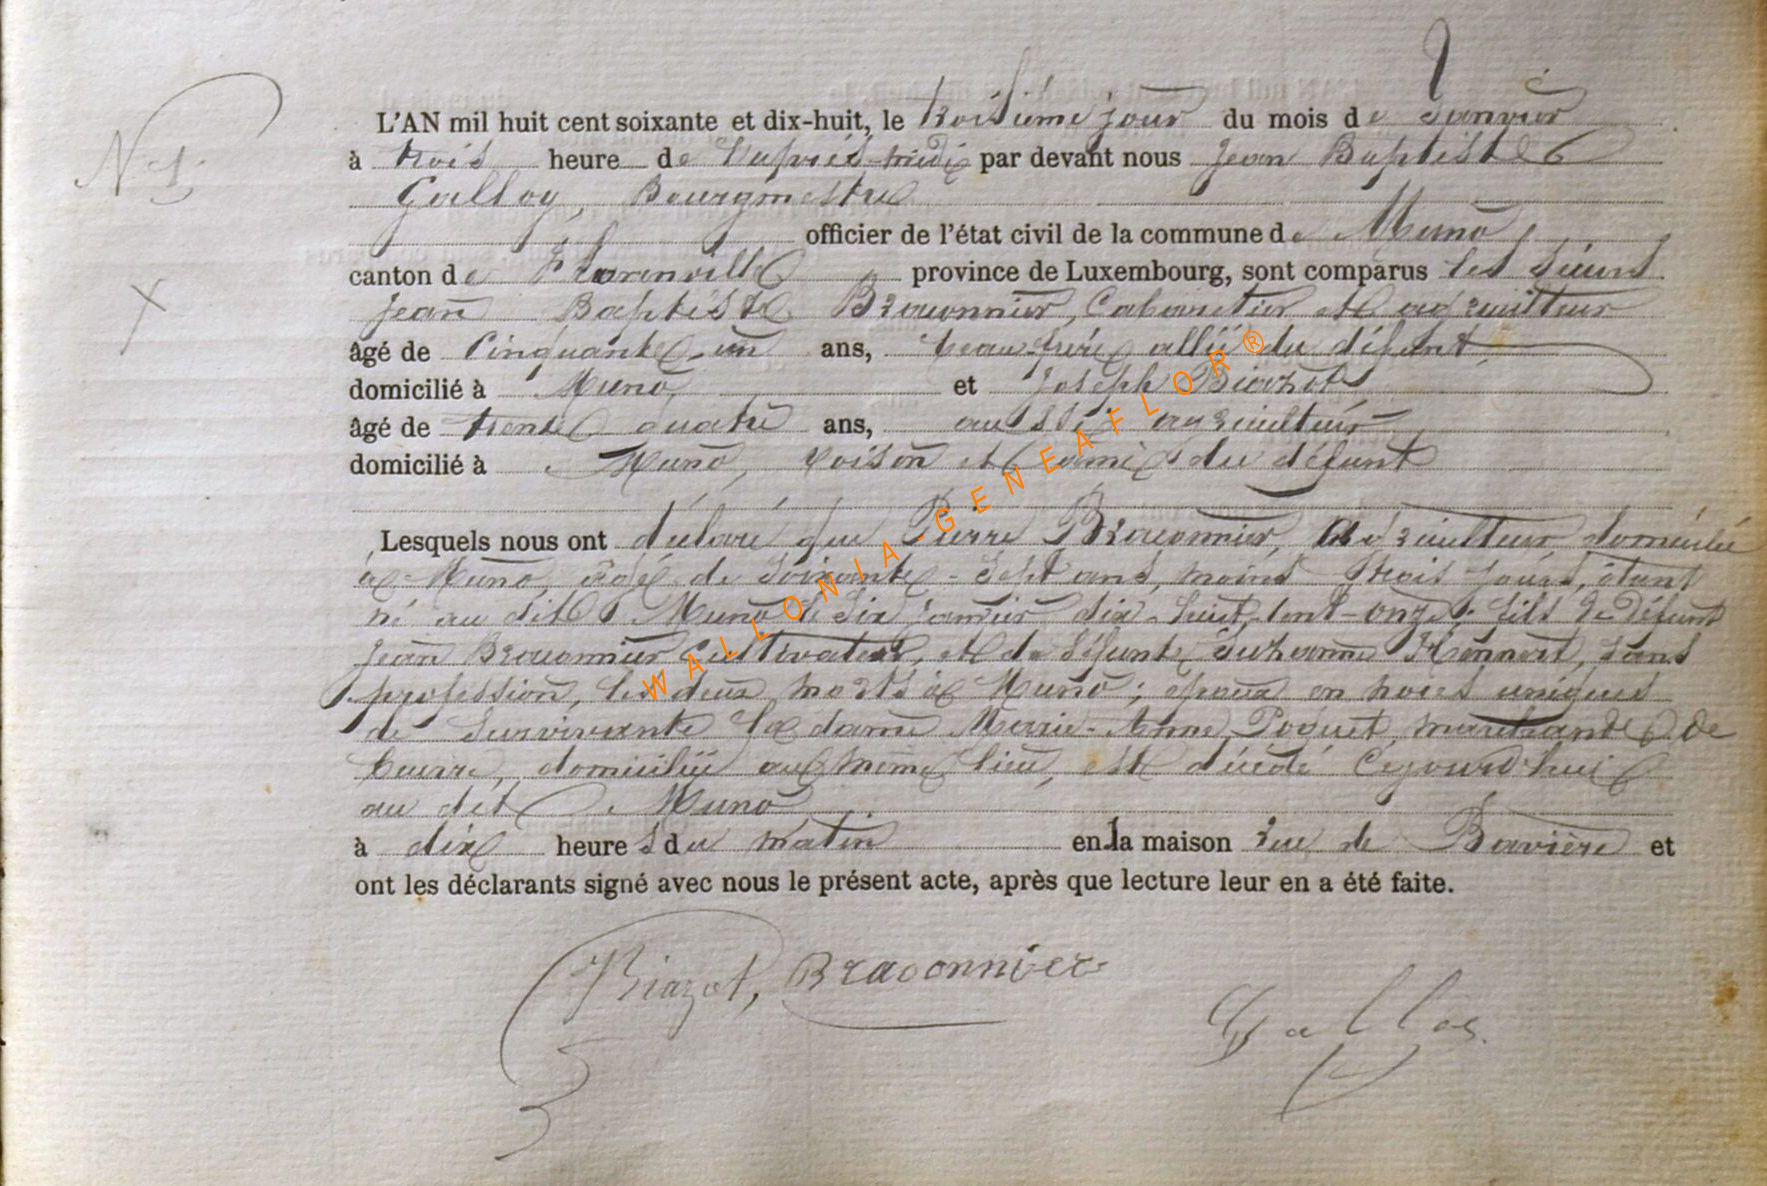 N 1
L'AN mil huit cent soixante et dix-huit, le troisième jour du mois de Janvier
à trois heure de l'après-midi par devant nous Jean Baptiste
Galloy, Bourgmestre
officier de l'état civil de la commune de Muno
canton de Florenville province de Luxembourg, sont comparus les sieurs
Jean Baptiste Braconnier, Cabaretier et agriculteur
âgé de Cinquante-un ans, beau-frère allié du défunt
domicilié à Muno, et Joseph Biazot
âgé de trente quatre ans, aussi agriculteur
domicilié à Muno, voisin et ami du défunt
Lesquels nous ont déclaré que Pierre Braconnier, Agriculteur domicilié
à Muno, âgé de soixante-sept ans, moins trois jours, étant
né au dit Muno le six janvier dix-huit-cent-onze; fils de défunt
Jean Braconnier Cultivateur, et de défunte Suzanne, sans
profession, les deux morts à Muno; époux en noces uniques
de survivante la dame Marie-Anne Poquet, marchande de
beurre, domiciliée au même lieu, est décédé Cejourd'hui
au dit Muno
à dix heures du matin en la maison rue de Bavière et
ont les déclarants signé avec nous le présent acte, après que lecture leur en a été faite.
Biazot, Braconnier
Galloy
WALLONIA-GENEAFLOR®